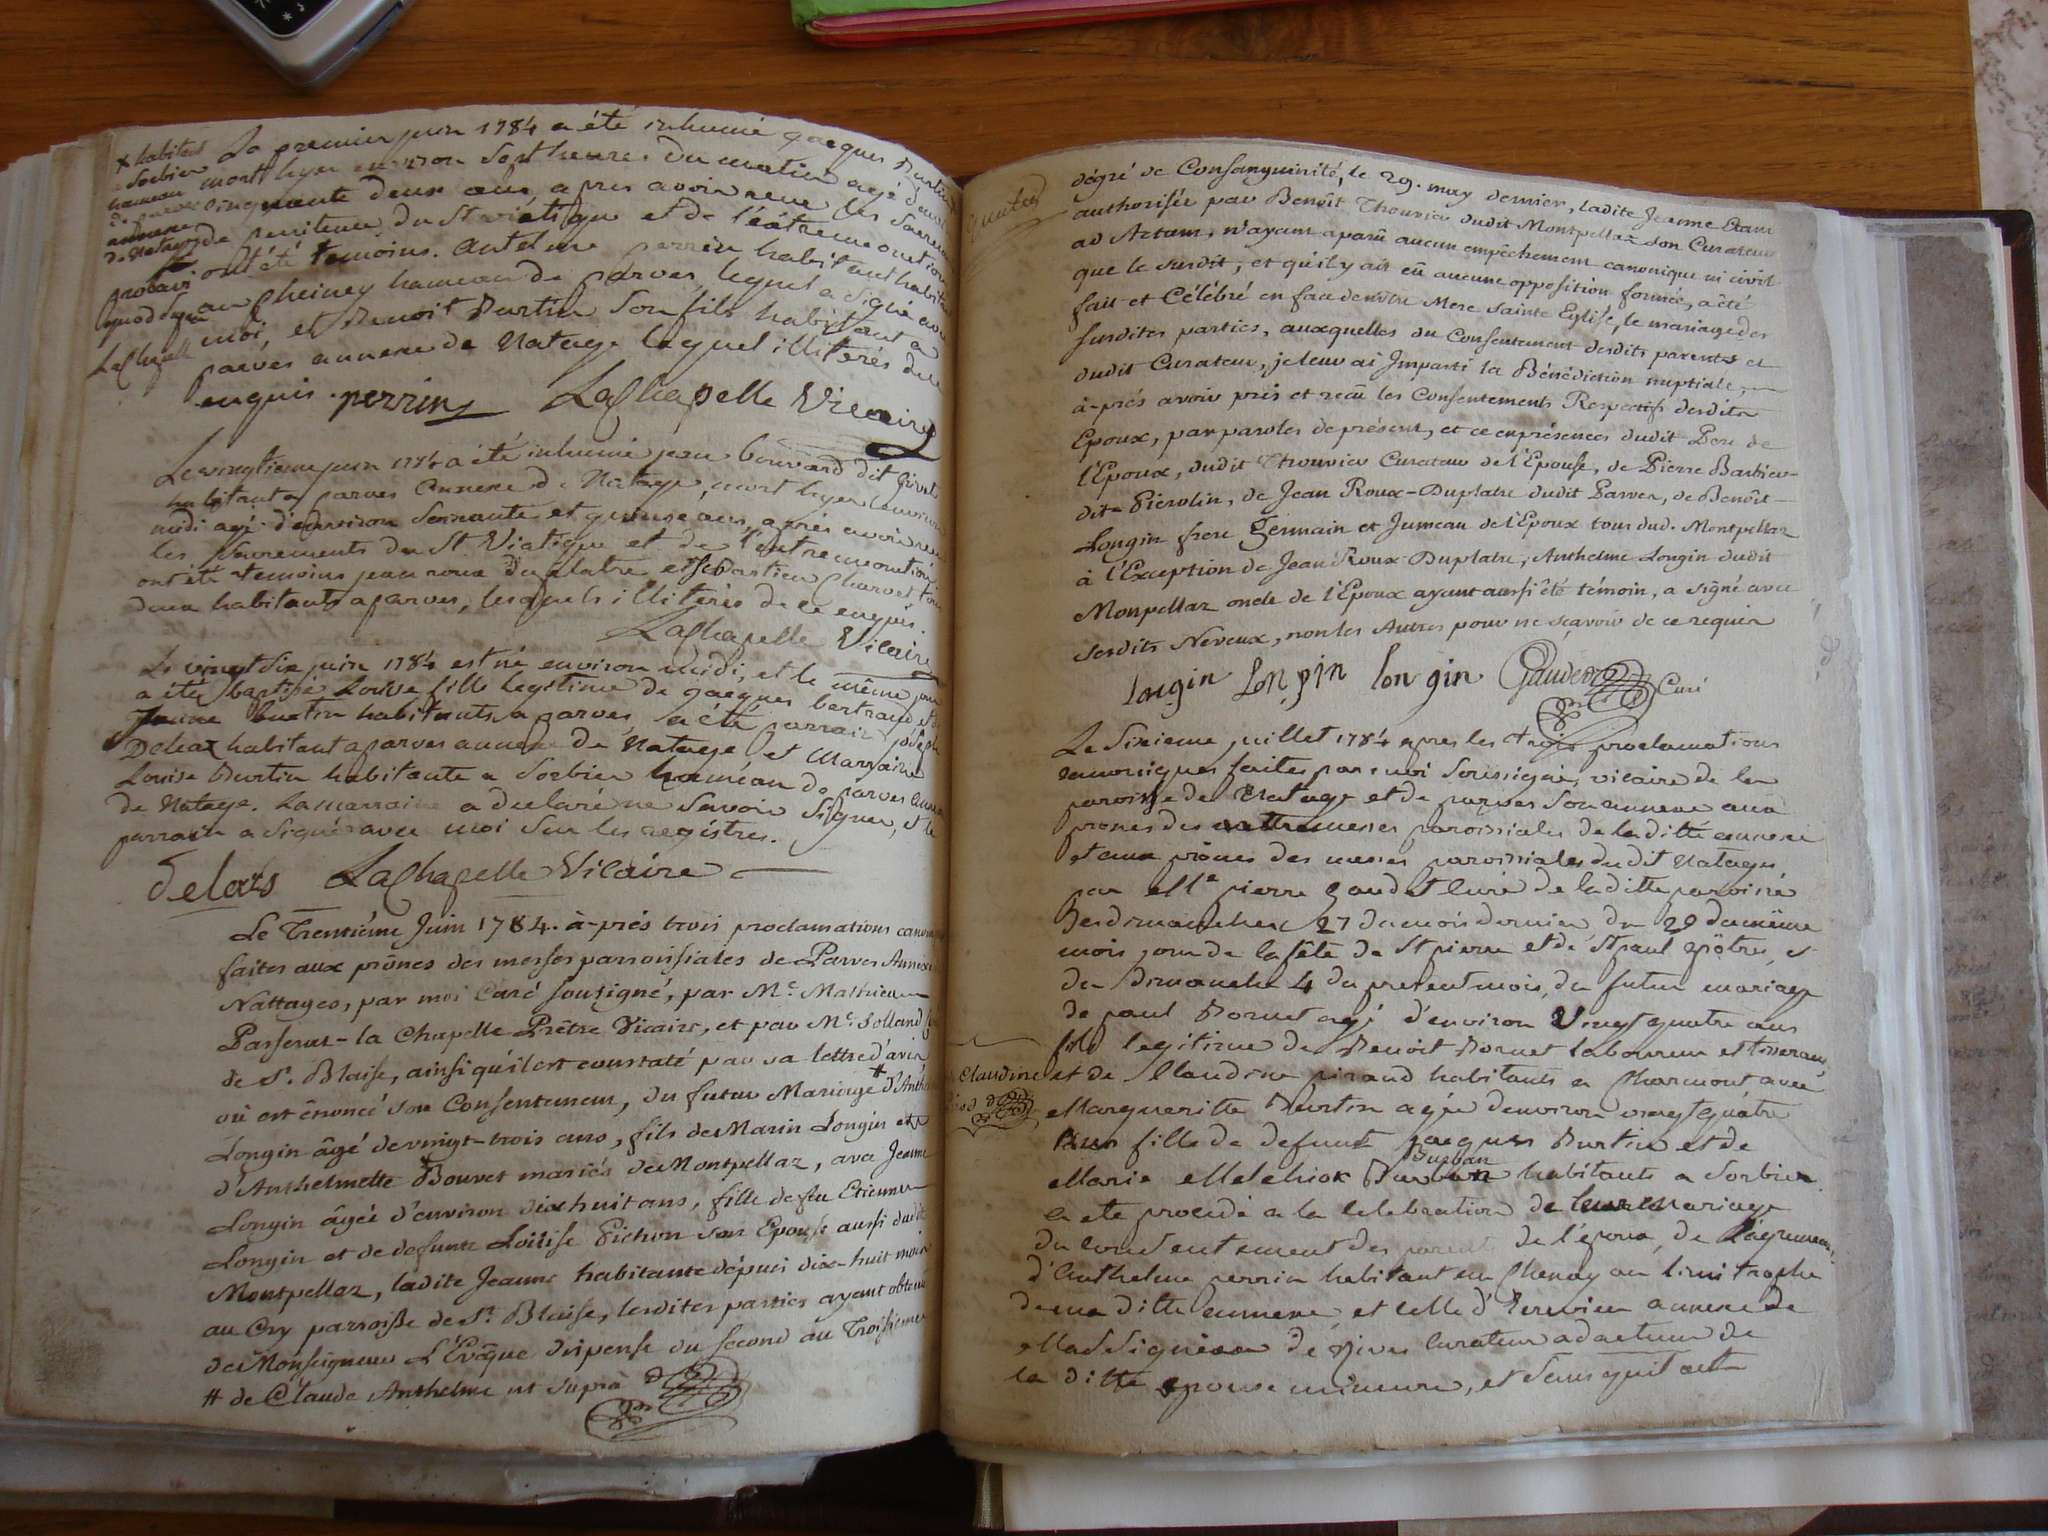 x habitant
a Sorbier
hameau
de parves
annexe
de Natage
approuvé
quod supra
LaChapelle
Le premier juin 1784 a été inhumé jacques Burtin
mort hyer environ sept heures du matin agé d'environ
cinquante deux ans, apres avoir reçu les Sacrements
de penitence, du St viatique et de l'éxtremeonction
ont été temoins. antelme perrin habitant habitant
au Cheiney hameau de parves, lequel a signé avec
moi, et Benoit Burtin son fils habitant a
parves annexe de Natage lequel illiterés de ce
enquis. perrin LaChapelle Vicaire
Le vingtieme juin 1784 a été inhumé jean bouvard dit
habitant a parves annexe de Natage, mort hyer environ
midi agé d'environ Soixante et quinze ans, aprés avoir reçu
les Sacrements du St Viatique et de l'extremeonction
ont été temoins jean roux duplatre et sebastien Charvet tous
deux habitants a parves, lesquels illiterés de ce enquis.
LaChapelle Vicaire
Le vingt Six juin 1784 est né environ midi, et le même jour
a été baptisé Louise fille legitime de jacques bertrand et de
Jeanne burtin habitants a parves, a été parrain joseph
Delaz habitant a parves annexe de Natage et Marraine
Louise Burtin habitante a Sorbier haméau de parves annexe
de Natage. La marraine a declaré ne Savoir Signer, et le
parrain a Signé avec moi Sur les registres.
delas LaChapelle Vicaire
Le Trentiéme Juin 1784. à-prés trois proclamations canoniques
faites aux prônes des messes parroissiales de Parves Annexe
Nattages, par moi Curé soussigné, par Mre. Mathieu
Passerat-la Chapelle Prêtre Vicaire, et par Mr. Solland
de St. Blaise, ainsi qu'il est constaté par sa lettre d'avis
où est énoncé son Consentement, du futur Mariage # d'Anthelme
Longin âgé de vingt-trois ans, fils de Marin Longin et
d'Anthelmette Bouvet mariés de Montpellaz, avec Jeanne
Longin âgée d'environ dix huit ans, fille de feu Etienne
Longin et de defunte Loüise Pichon son Epouse aussi dudit
Montpellaz, ladite Jeanne habitante dépuis dix-huit mois
au Cry parroisse de St. Blaise, lesdites parties ayant obtenu
de Monseigneur L'Evêque dispense du second au Troisieme
# de Claude Anthelme ut suprà
dégré de Consanguinité, le 29. may dernier, ladite Jeanne Etant
authorisée par Benoît Thouvier dudit Montpellaz son Curateur
ad Actum, n'ayant aparû aucun empêchement canonique ni civil
que le susdit, et qu'il y ait eû aucune opposition formée, a été
fait et Célébré en face de nôtre Mere Sainte Eglise, le mariage des
susdites parties, auxquelles du Consentement desdits parents et
dudit Curateur, je leur ai Imparti la Bénédiction nuptiale,
à-prés avoir pris et reçû les Consentements Respectifs desdits
Epoux, par paroles de présent, et ce en présences dudit Pere de
l'Epoux, dudit Thouvier Curateur de l'Epouse, de Pierre Barbier
dit-Piérolin, de Jean Roux-Duplatre dudit Parves, de Benoît
Longin frere germain et Jumeau de l'Epoux tous dud. Montpellaz
à l'Exception de Jean Roux-Duplatre, Anthelme Longin dudit
Monpellaz oncle de l'Epoux ayant aussi été témoin, a signé avec
sesdits Neveux, non les Autres pour ne sçavoir de ce requis
longin Longin longin Gaudet Curé
Le Sixieme juillet 1784 apres les trois proclamations
canoniques faites par moi Soussigné, vicaire de la
paroisse de Natage et de parves Son annexe aux
prones des messes paroissiales de la ditte annexe
et aux prônes des messes paroissiales du dit Natages
par Mre pierre gaudet curé de la ditte paroisse
des dimanches 27 du mois dernier du 29 du même
mois jour de la fête de St pierre et de St paul apôtres, et
du dimanche 4 du present mois, du futur mariage
de paul Bornet agé d'environ Vingt quatre ans
fils legitime de Benoit Bornet laboureur et tisserand,
Claudine
et de Claudine piraud habitants a Charmont avec
Margueritte Burtin agée d'environ vingt quatre
ans fille de defunt jacques Burtin et de
Burban
Marie Melchior habitants a Sorbier
a eté procedé a la celebration de leur Mariage
du consentement des parents de l'époux, de l'agrement
d'anthelme perrin habitant au Chenay au limitrophe
de ma ditte annexe, et celle d' annexe de
Massignieu de Rives curateur ad actum de
la ditte epouse mineure, et Sans qu'il ait